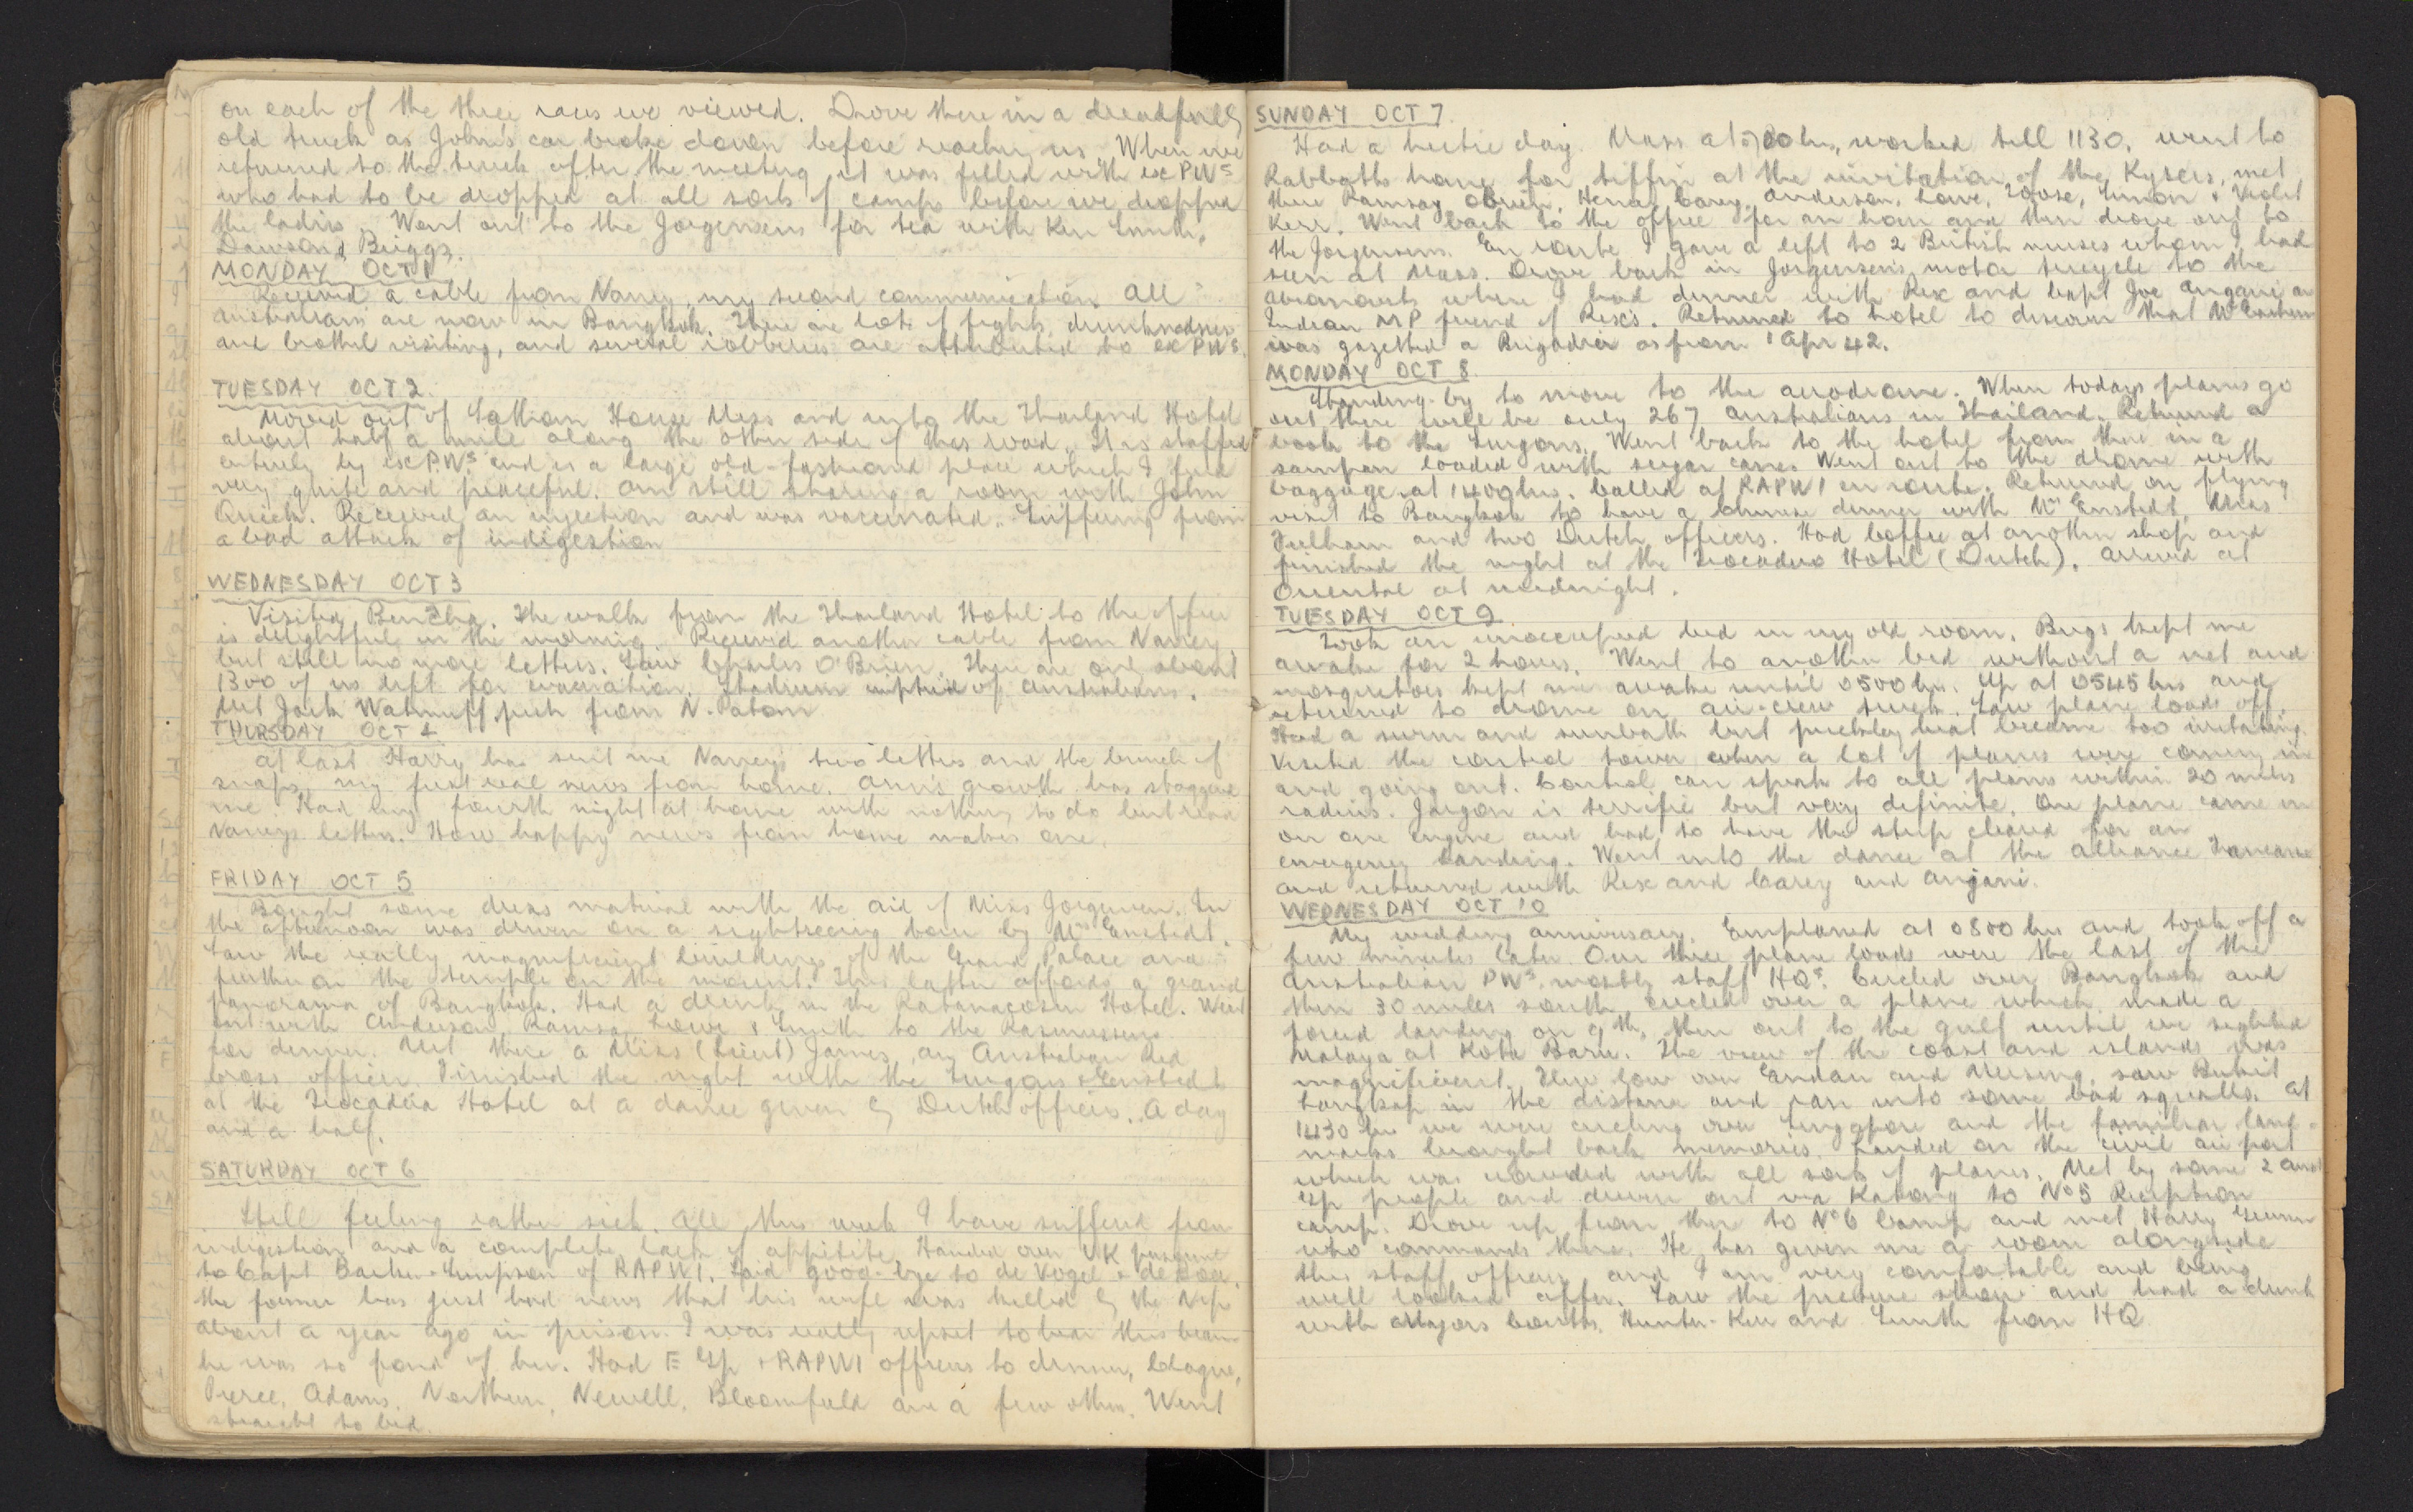 on each of the three races we viewed. Drove there in a dreadfully
old truck as John's car broke down before reaching us. When we
returned to the truck after the meeting it was filled with ex PWs
who had to be dropped at all sorts of camps before we dropped
the ladies. Went out to the Jorgensens for tea with Ken Smith,
Dawson & Briggs.
MONDAY OCT 1
Received a cable from Nancy, my second communication. All
Australians are now in Bangkok. There are lots of fights, drunkedness
and brothel visiting, and several robberies are attributed to ex PWs.
TUESDAY OCT 2
Moved out of Sathon House Mess and into the Thailand Hotel
about half a mile along the other side of this road. It is staffed
entirely by ex PWs and is a large old-fashioned place which I find
very quite and peaceful. Am still sharing a room with John
Quick. Received an injection and was vaccinated. Suffering from
a bad attack of indigestion
WEDNESDAY OCT 3
Visited. The walk from the Thailand Hotel to the office
is delightful in the morning. Received another cable from Nancy
but still no more letters. Saw Charles O'Brien. There are only about
1300 of us left for evacuation. Stadium emptied of Australians.
Met Jack up from N. Patom
THURSDAY OCT 4
At last Harry has sent me Nancy's two letters and the bunch of
snaps, my first real news from home. Ann's growth has staggered
me. Had my fourth night at home with nothing to do but read
Nancy's letters. How happy news from home makes one.
FRIDAY OCT 5
Bought some dress material with the aid of Miss Jorgensen. In
the afternoon was driven on a sightseeing tour by Mrs Enstedt.
Saw the really magnificent buildings of the Grand Palace and
further on the temple on the mount. This latter affords a grand
panorama of Bangkok. Had a drink in the Ratanacosin Hotel. Went
out with Anderson, Ramsay, Lowe & Smith to the Rasmussens
for dinner. Met there a Miss (Lieut) James, an Australian Red
Cross officer. Finished the night with the & Enstedts
at the Trocadero Hotel at a dance given by Dutch officers. A day
and a half.
SATURDAY OCT 6
Still feeling rather sick. All this week I have suffered from
indigestion and a complete lack of appetite. Handed over UK
to Capt Barker-Simpson of RAPWI. Said good-bye to de Vogel &
the former has just had news that his wife was killed by the Nip
about a year ago in prison. I was really upset to hear this because
he was so fond of her. Had E Gp & RAPWI officers to dinner, Clague,
Pierce, Adams, Newell, Bloomfield and a few others. Went
straight to bed.
SUNDAY OCT 7
Had a hectic day. Mass at 0700 hrs, worked till 1130, went to
Rabbaths home for tiffin at the invitation of the, met
there Ramsay, O'Brien, Henry Carey, Anderson, Lowe, Simon & Violet
Kerr. Went back to the office for an hour and then drove out to
the Jorgensens. En route I gave a lift to 2 British nurses whom I had
seen at Mass. Drove back in Jorgensen's motor tricycle to the
where I had dinner with Rex and Capt Joe Angani an
Indian MP friend of Rex's. Returned to hotel to discover that McEachern
was gazetted a Brigadier as from 1 Apr 42.
MONDAY OCT 8
Standing-by to move to the aerodrome. When todays planes go
out there will be only 267 Australians in Thailand. Returned a
book to the. Went back to the hotel from there in a
sampan loaded with sugar cane. Went out to the drome with
baggage at 1400 hrs. Called at RAPWI en route. Returned on flying
visit to Bangkok to have a Chinese dinner with Mrs Enstedt, Miss
Fulham and two Dutch officers. Had coffee at another shop and
finished the night at the Trocadero Hotel (Dutch). Arrived at
Oriental at midnight.
TUESDAY OCT 9
Took an unoccupied bed in my old room. Bugs kept me
awake for 2 hours. Went to another bed without a net and
mosquitoes kept me awake until 0500 hrs. Up at 0545 hrs and
returned to drome on air-crew truck. Saw plane loads off.
Had a swim and sunbath but prickley heat became too irritating.
Visited the control tower when a lot of planes were coming in
and going out. Control can speak to all planes within 20 miles
radius. Jargon is terrific but very definite. One plane came in
on one engine and had to have the strip cleared for an
emergency landing. Went into the dance at the Alliance Francaise
and returned with Rex and Carey and Anjani.
WEDNESDAY OCT 10
My wedding anniversary. Emplaned at 0800 hrs and took off a
few minutes later. Our three plane loads were the last of the
Australian PWs, mostly staff HQs. Circled over Bangkok and
then 30 miles south circled over a plane which made a
forced landing on 9th, then out to the gulf until we sighted
Malaya at Kota Baru. The view of the coast and islands was
magnificent. Flew low over Endau and Mersing, saw Bukit
Langkap in the distance and ran into some bad squalls. At
1430 hrs we were circling over Singapore and the familiar land-
marks brought back memories. Landed on the civil air port
which was crowded with all sorts of planes. Met by some 2 Aust
Gp people and driven out via Katong to No 5 Reception
camp. Drove up from there to No 6 Camp and met Harry
who commands there. He has given me a room alongside
this staff officers and I am very comfortable and being
well looked after. Saw the picture show and had a drink
with Majors Couttes, Hunter-Kerr and Smith from HQ